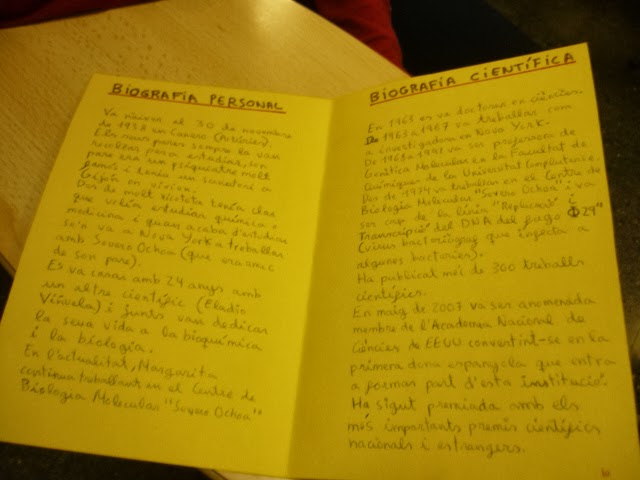 BIOGRAFIA PERSONAL
Va nàixer el 30 de novembre
de 1938 en Canero (Astúries).
Els seus pares sempre la van
recolzar en els estudis, son
pare era un psiquiatre molt
famós i tenia un sanatori a
Gijón on vivien.
Des de molt xicoteta tenia clar
que volia estudiar química o
medicina i quan acaba d'estudiar
se'n va a Nova York a treballar
amb Severo Ochoa (que era amic
de son pare).
Es va casar amb 24 anys amb
un altre científic (Eladio
Viñuela) i junts van dedicar
la seua vida a la bioquímica
i la biologia.
En l'actualitat, Margarita
continua treballant en el Centre de
Biologia Molecular "Severo Ochoa"
BIOGRAFIA CIENTÍFICA
En 1963 es va doctorar en ciències.
De 1963 a 1967 va treballar com
a investigadora en Nova York.
De 1968 a 1992 va ser professora de
Genètica Molecular en la Facultat de
Químiques de la Universitat Complutense.
Des de 1974 va treballar en el Centre de
Biologia Molecular "Severo Ochoa" i va
ser cap de la línia "Replicació i
Transcripció del DNA del fago Φ29"
(virus bacteriòfag que infecta a
algunes bacteries).
Ha publicat més de 300 treballs
científics.
En maig de 2007 va ser anomenada
membre de l'Acadèmia Nacional de
Ciències de EEUU convertint-se en la
primera dona espanyola que entra
a formar part d'esta Institució.
Ha sigut premiada amb els
més importants premis científics
nacionals i estrangers.